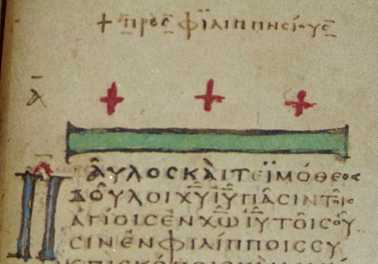 + προς φιλιππησιους
Α
Παυλος και τειμοθεος
δουλοι χυ ιυ πασιν τοις
αγιοις εν χω ιυ τοις ου
σιν εν φιλιπποις συ